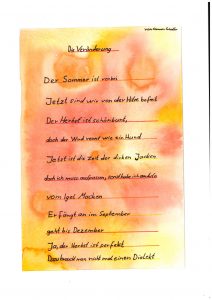 Die Veränderung
Der Sommer ist vorbei
Jetzt sind wir von der Hitze befreit
Der Herbst ist schön bunt,
doch der Wind rennt wie ein Hund
Jetzt ist die Zeit der dicken Jacken
doch ich muss aufpassen, sonst habe ich
vom Igel Macken
Er fängt an im September
geht bis Dezember
Ja, der Herbst ist perfekt
Dau braucht man nicht mal einen Dialekt